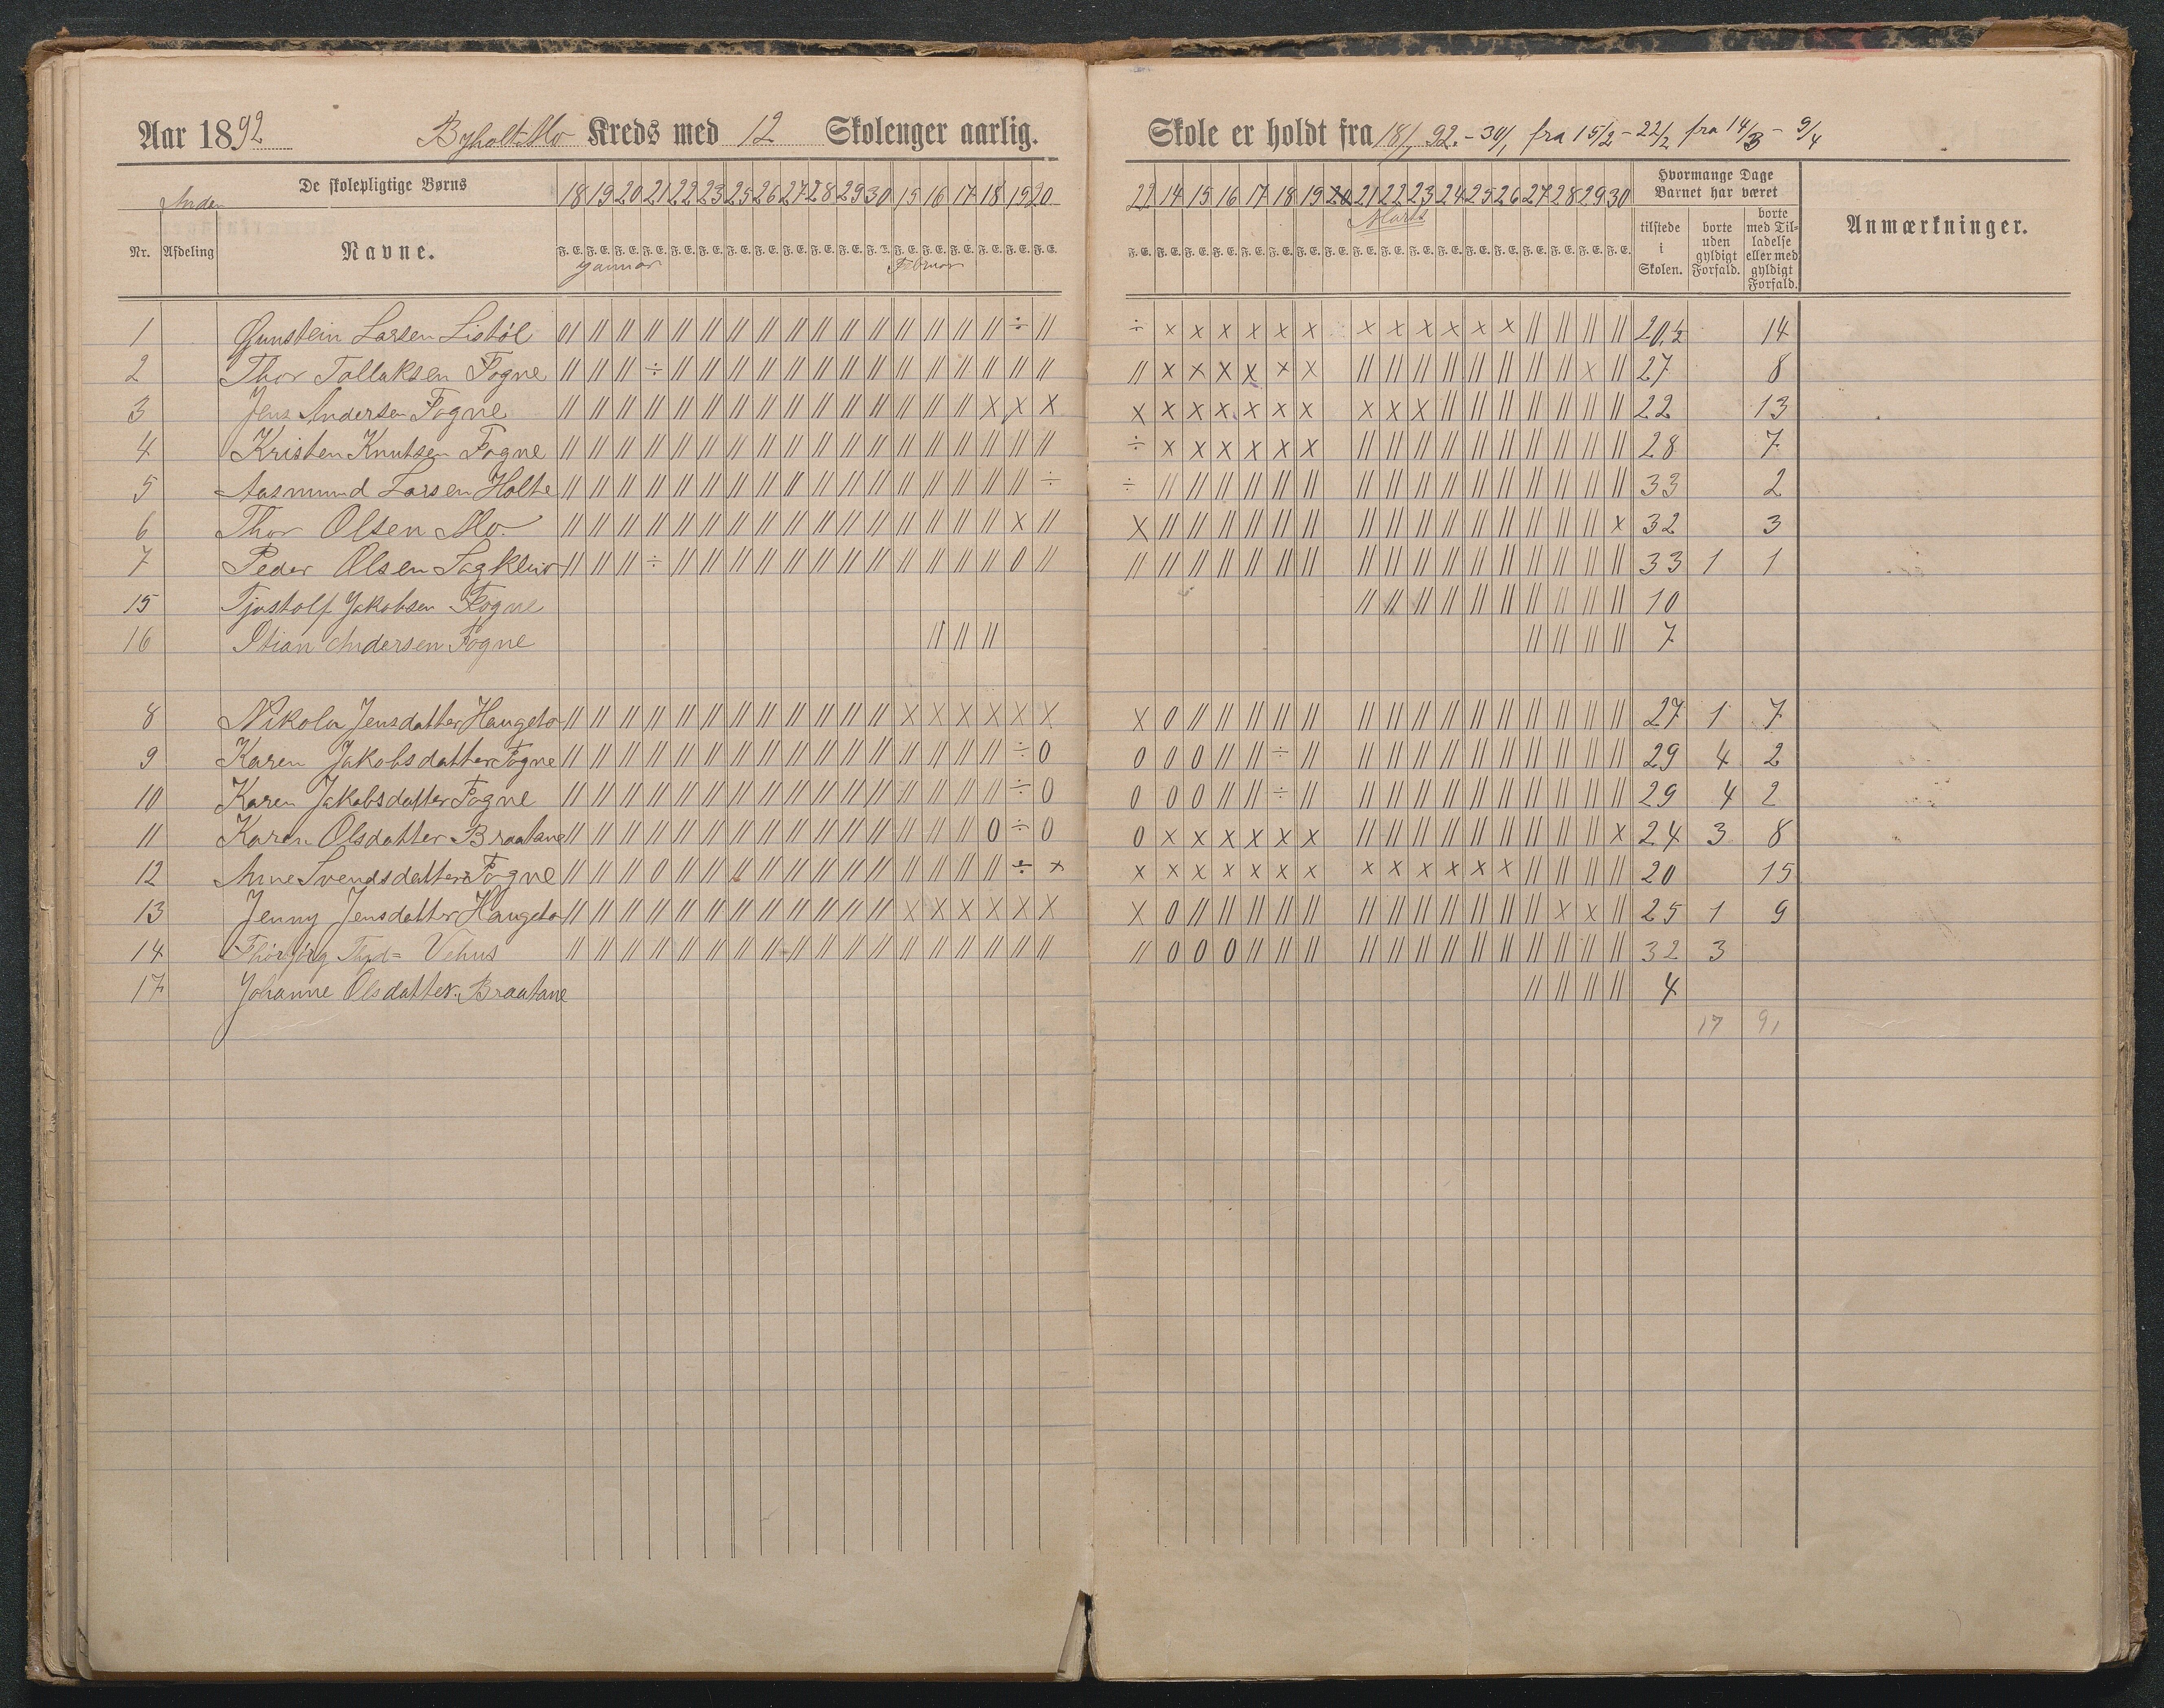 Aar 1892 Byholt-Mo Kreds med 12 Skolenger aarlig.
Skole er holdt fra 18/1 92. - 30/1, fra 15/2 - 22/2 fra 14/3 - 9/4
Anden De skolepligtige Børns 18 19 20 21 22 23 25 26 27 28 29 30 15 16 17 18 19 20
22 14 15 16 17 18 19 20 21 22 23 24 25 26 27 28 29 30 Hvormange Dage Barnet har været
Marts
Nr. Afdeling Navne. F. E. F. E. F. E. F. E. F. E. F. E. F. E. F. E. F. E. F. E. F. E. F. E. F. E. F. E. F. E. F. E. F. E. F. E.
Januar Februar
tilstede i Skolen. borte uden gyldigt Forfald. borte med Tilladelse eller med gyldigt Forfald. Anmærkninger.
1 Gunstein Larsen Listöl 01 || || || || || || || || || || || || || || || ÷ || ÷ x x x x x x x x x x x x || || || || 20,½ 14
2 Thor Tallaksen Fogne || || || ÷ || || || || || || || || || || || || || || || x x x x x x || || || || || || || || x || 27 8
3 Jens Andersen Fogne || || || || || || || || || || || || || || || x x x x x x x x x x x x x || || || || || || || 22 13
4 Kristen Knutsen Fogne || || || || || || || || || || || || || || || || || || ÷ x x x x x x || || || || || || || || || || 28 7
5 Aasmund Larsen Holte || || || || || || || || || || || || || || || || || ÷ ÷ || || || || || || || || || || || || || || || || 33 2
6 Thor Olsen Mo. || || || || || || || || || || || || || || || || x || x || || || || || || || || || || || || || || || x 32 3
7 Peder Olsen Sagkleiv || || || ÷ || || || || || || || || || || || || 0 || || || || || || || || || || || || || || || || || || 33 1 1
15 Tjostolf Jakobsen Fogne || || || || || || || || || || 10
16 Stian Andersen Fogne || || || || || || || 7
8 Nikola Jensdatter Haugeto || || || || || || || || || || || || x x x x x x x 0 || || || || || || || || || || || || || || || 27 1 7
9 Karen Jakobsdatter Fogne || || || || || || || || || || || || || || || || ÷ 0 0 0 0 || || ÷ || || || || || || || || || || || 29 4 2
10 Karen Jakobsdatter Fogne || || || || || || || || || || || || || || || || ÷ 0 0 0 0 || || ÷ || || || || || || || || || || || 29 4 2
11 Karen Olsdatter Braatane || || || || || || || || || || || || || || || 0 ÷ 0 0 x x x x x x || || || || || || || || || x 24 3 8
12 Anne Svendsdatter Fogne || || || 0 || || || || || || || || || || || || ÷ x x x x x x x x x x x x x x || || || || 20 15
13 Jenny Jensdatter Haugeto || || || || || || || || || || || || x x x x x x x 0 || || || || || || || || || || || || x x || 25 1 9
14 Thorbjörg Thgd= Vehus || || || || || || || || || || || || || || || || || || || 0 0 0 || || || || || || || || || || || || || 32 3
17 Johanne Olsdatter. Braatane || || || || 4
17 91